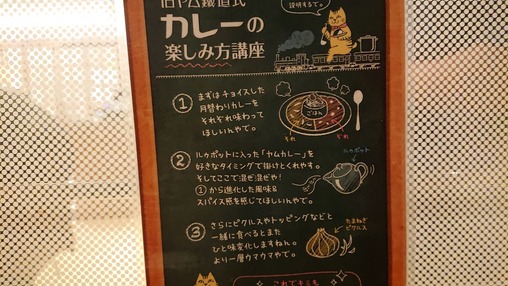 旧ヤム鐵道式
説明するで。
カレーの
楽しみ方講座
① まずはチョイスした
月替わりカレーを
それぞれ味わって
ほしいんやで。
ごはん
それ
ぞれ
② ルゥポットに入った「ヤムカレー」を
好きなタイミングで掛けとくれやす。
そしてここで混ぜ混ぜや!
①から進化した風味&
スパイス感を感じてほしいんやで。
ルゥポット
③ さらにピクルスやトッピングなどと
一緒に食べるとまた
ひと味変化しますねん。
より一層ウマウマやで。
たまねぎ
ピクルス
これでキミも